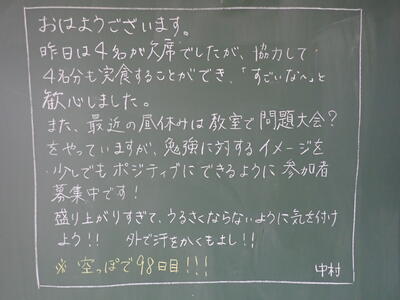 おはようございます。
昨日は4名が欠席でしたが、協力して
4名分も完食することができ、「すごいなぁ」と
歓心しました。
また、最近の昼休みは教室で問題大会?
をやっていますが、勉強に対するイメージを
少しでもポジティブにできるように参加者
募集中です!
盛り上がりすぎて、うるさくならないように気を付け
よう!! 外で汗をかくもよし!!
※ 空っぽで98日目!!!
中村